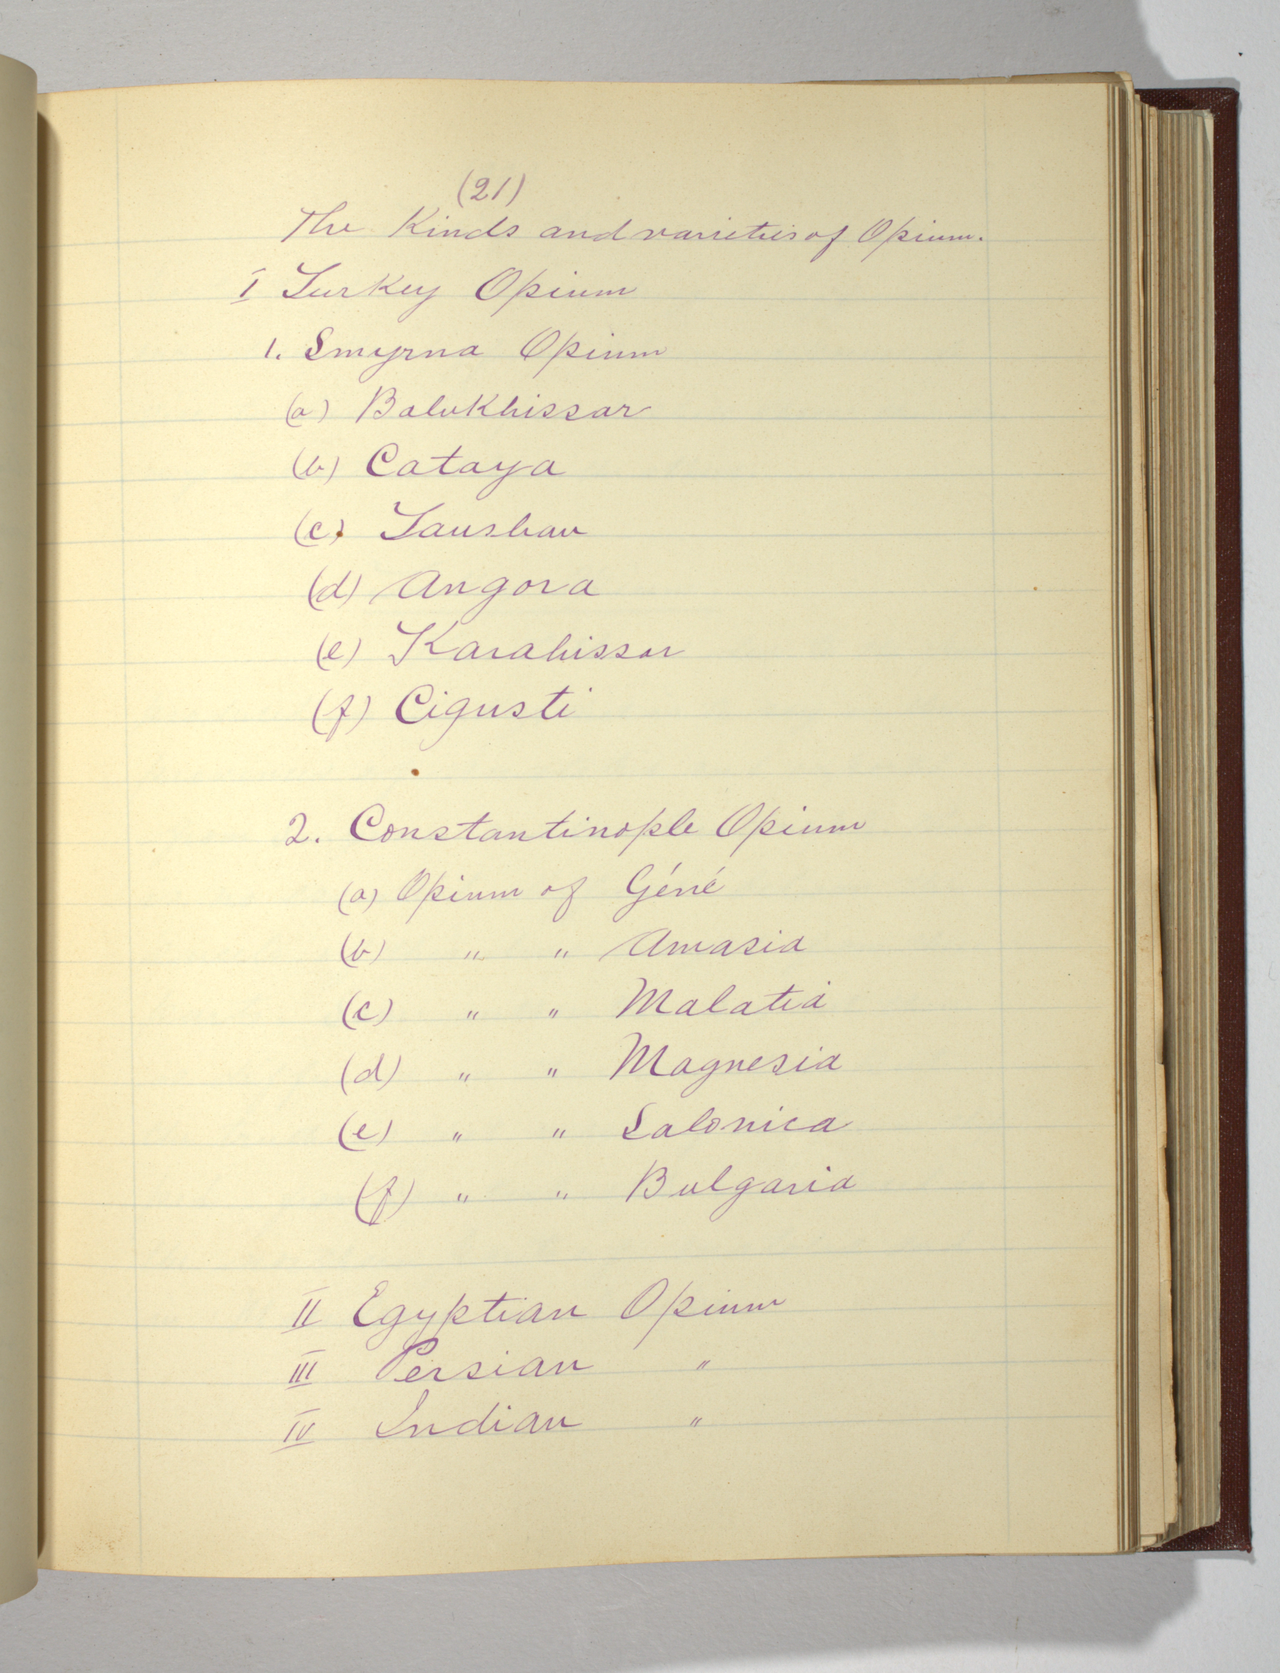 (21)
The Kinds and varieties of Opium.
I Turkey Opium
1. Smyrna Opium
(a) Balukhissar
(b) Cataya
(c) Taushan
(d) Angora
(e) Karahissar
(f) Cigusti
2. Constantinople Opium
(a) Opium of Géné
(b) " " Amasia
(c) " " Malatia
(d) " " Magnesia
(e) " " Salonica
(f) " " Bulgaria
II Egyptian Opium
III Persian "
IV Indian "